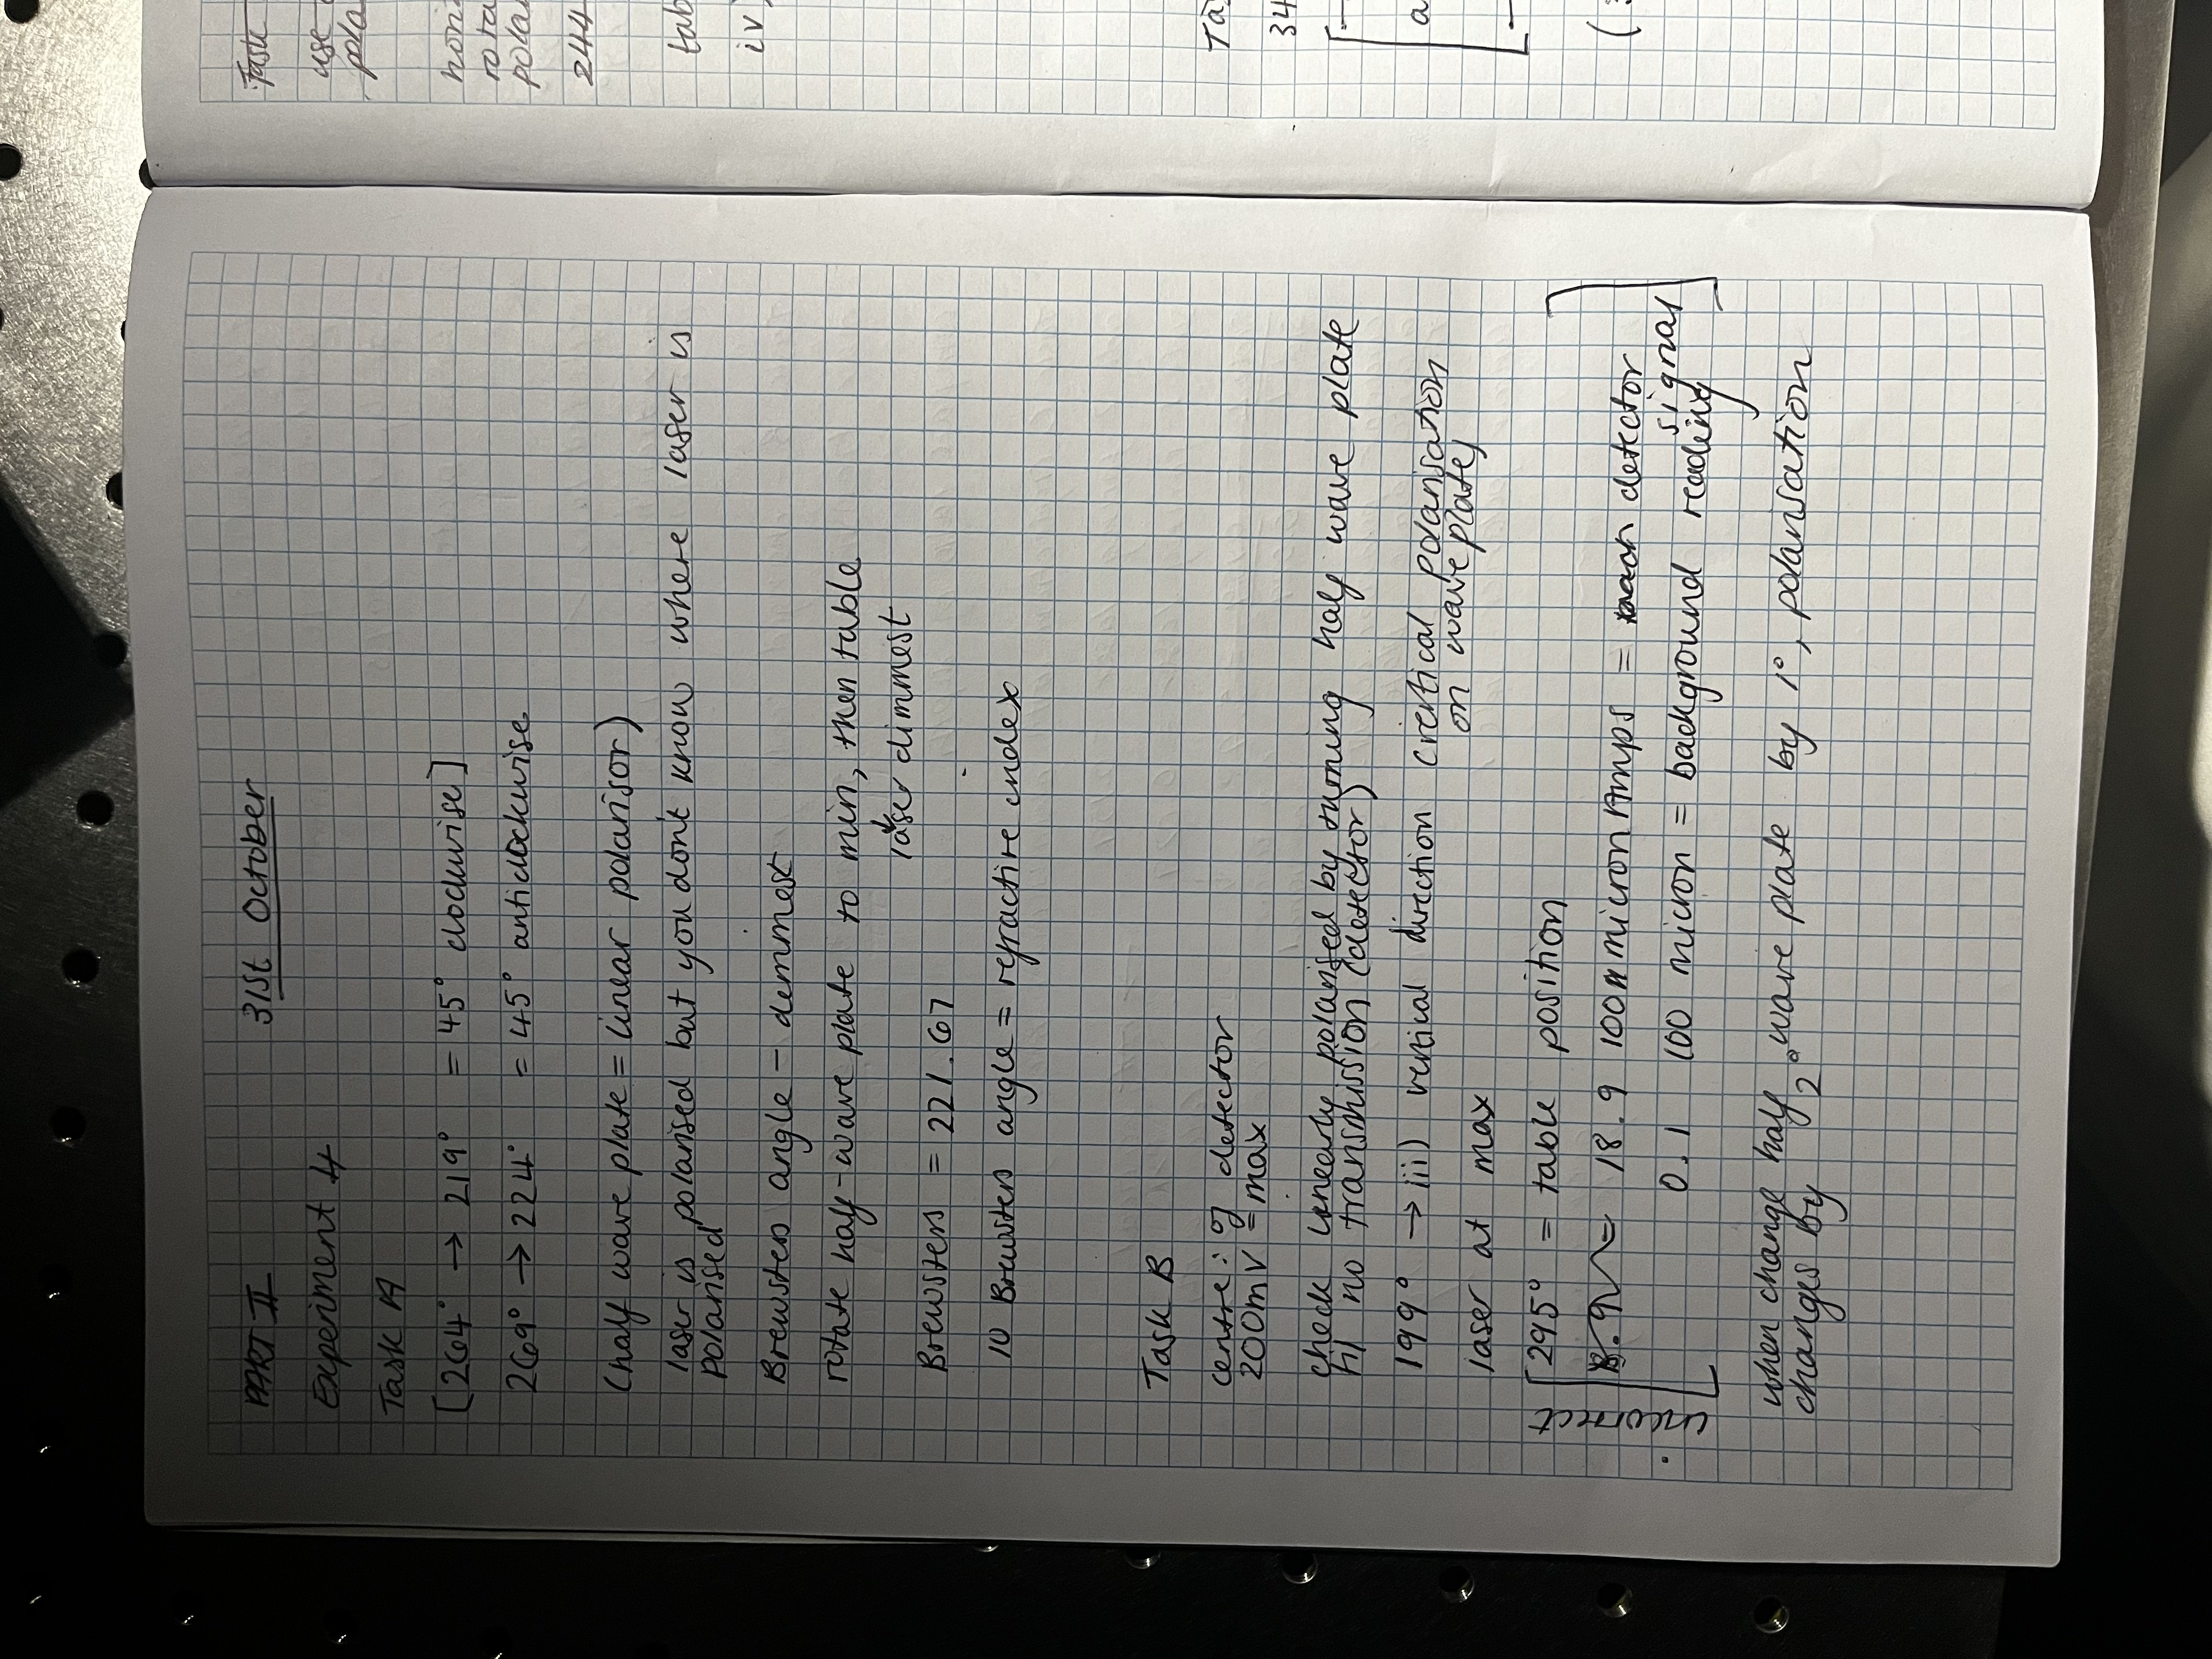 PART II 31st October
Experiment 4
Task A
[264° → 219° = 45° clockwise]
269° → 224° = 45° anticlockwise
(half wave plate = linear polarisor)
laser is polarised but you don't know where laser is
polarised
Brewsters angle - demmest
rotate half-wave plate to min, then table
↓
laser dimmest
Brewsters = 221.67
Brewsters angle = refractive index
Task B
centre: of detector
200mV = max
check linearly polarised by turning half wave plate
til no transmission (detector)
199° → iii) vertical direction (vertical polarisation
on wave plate)
laser at max
incorrect
[295° = table position
= 18.9 100 micron Amps = detector
signal
0.1 100 micron = background reading]
when change half wave plate by 1°, polarisation
changes by 2°
Task
use
pola
hori
rota
pola
244
tab
iv)
Ta
34
a
(3